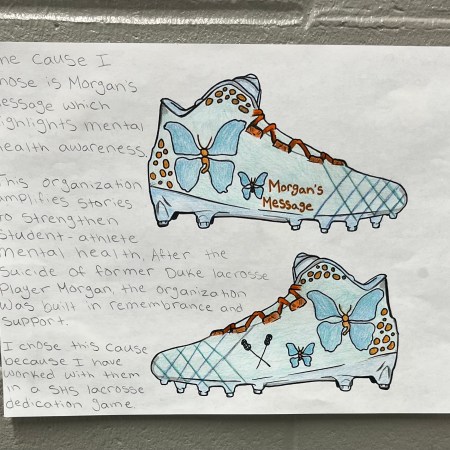 he Cause I
hose is Morgan's
essage which
ighlights mental
ealth awareness.
This organization
amplifies stories
to strengthen
student-athlete
mental health. After the
suicide of former Duke lacrosse
Player Morgan, the organization
was built in remembrance and
support.
I chose this cause
because I have
worked with them
in a SHS lacrosse
dedication game.
Morgan's
Message